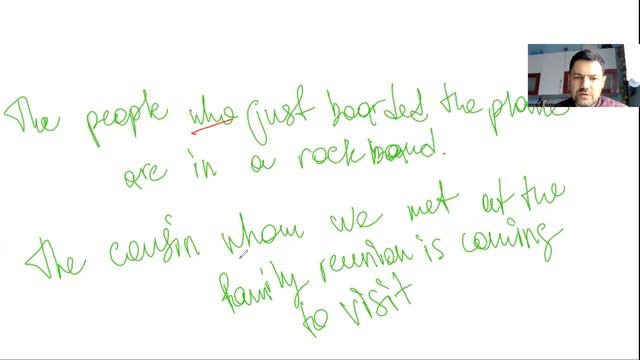 The people who just boarded the plane
are in a rock band.
The cousin whom we met at the
family reunion is coming
to visit